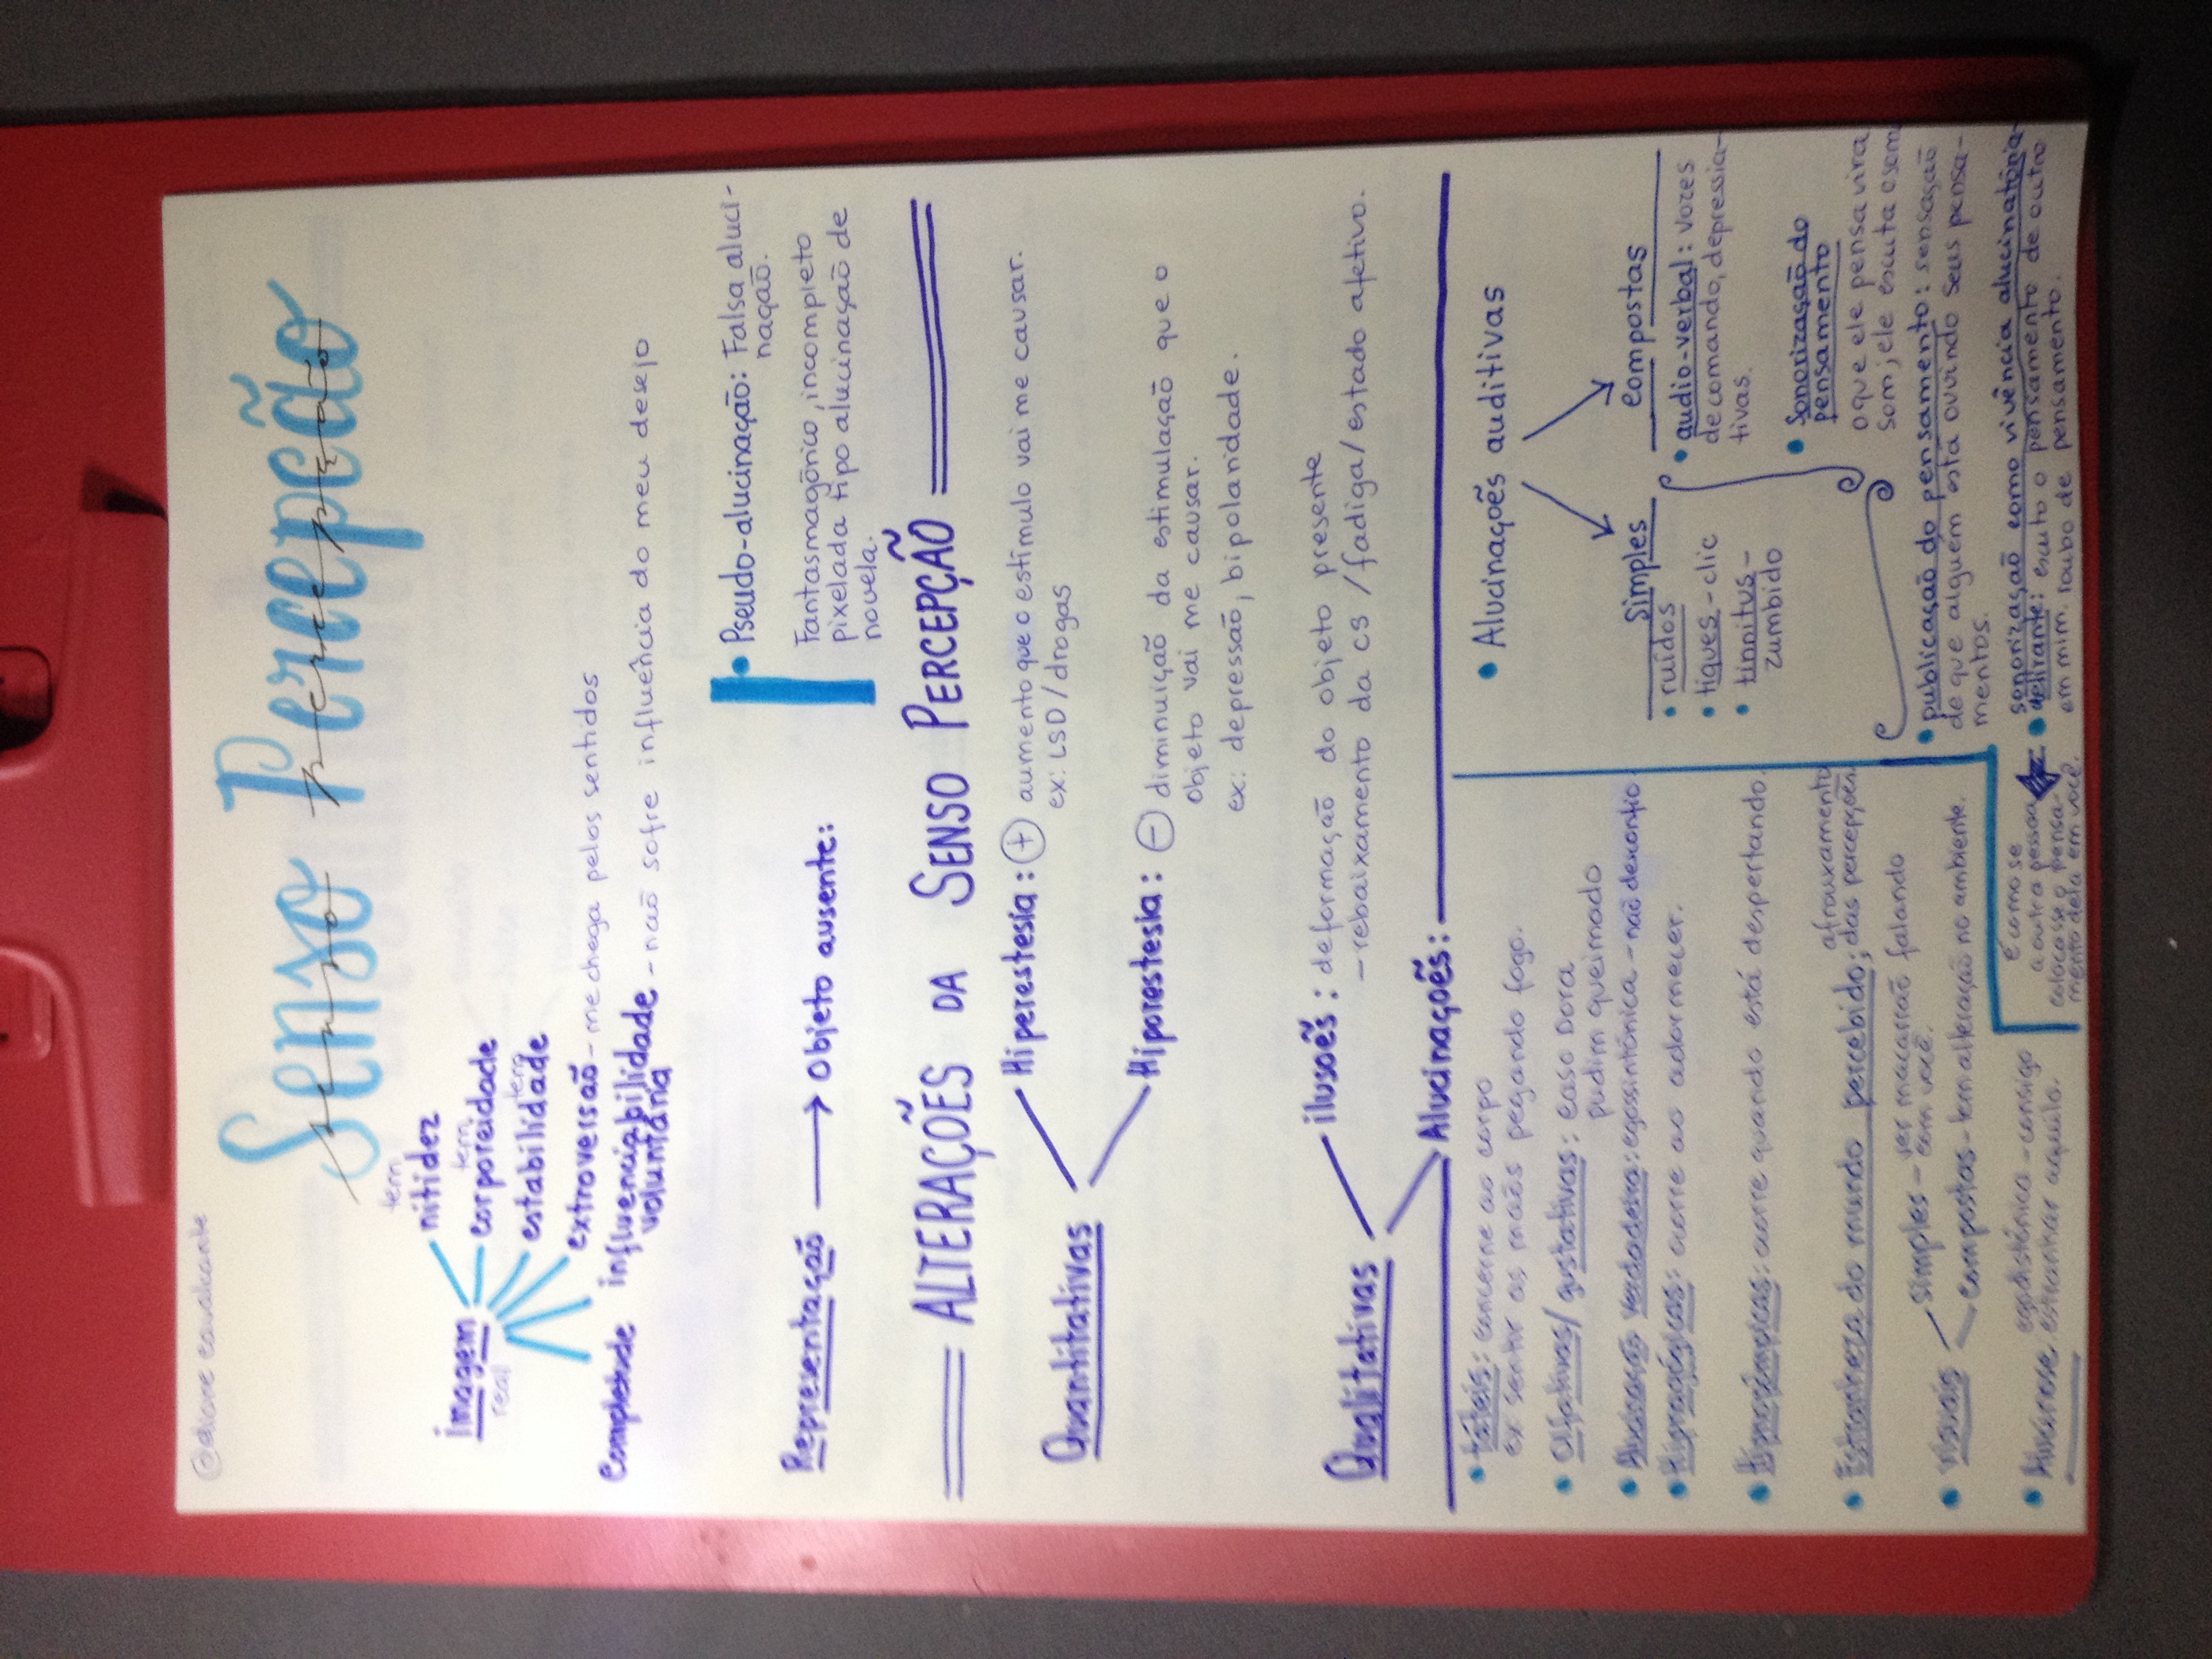 @dione cavalcante
Senso Percepção
senso percepção
Imagem
real
tem
nitidez
tem
corporeidade
tem
estabilidade
extroversão - me chega pelos sentidos
Completude influenciabilidade - não sofre influência do meu desejo
voluntária
Representação → Objeto ausente:
• Pseudo-alucinação: Falsa aluci-
nação.
Fantasmagórico, incompleto
pixelada tipo alucinação de
novela.
ALTERAÇÕES DA SENSO PERCEPÇÃO
Quantitativas
Hiperestesia: + aumento que o estímulo vai me causar.
ex: LSD/drogas
Hiporestesia: - diminuição da estimulação que o
objeto vai me causar.
ex: depressão, bipolaridade.
Qualitativas
ilusões: deformação do objeto presente
- rebaixamento da cs / fadiga/ estado afetivo.
Alucinações:
• táteis: concerne ao corpo
ex sentir as mãos pegando fogo.
• Olfativas/ gustativas: caso Dora
pudim queimado
• Alucinação Verdadeira: egossintônica - não desconfio
• Hipnagógicas: ocorre ao adormecer.
• Hipnopômpicas: ocorre quando está despertando.
• Estranheza do mundo percebido: afrouxamento
das percepções
• Visuais
Simples - ver macarrão falando
com você.
Compostas - tem alteração no ambiente.
• Alucinose egodistônica - consigo
estranhar aquilo.
• Alucinações auditivas
Simples
• ruídos
• tiques - clic
• tinnitus -
zumbido
compostas
• audio-verbal: vozes
de comando, depressia-
tivas.
• Sonorização do
pensamento
o que ele pensa vira
som; ele escuta esom
• publicação do pensamento: sensação
de que alguém está ouvindo seus pensa-
mentos.
sonorização como vivência alucinatória-
• delirante: escuto o pensamento de outro
em mim. roubo de pensamento.
é como se
a outra pessoa
colocasse o pensa-
mento dela em você.